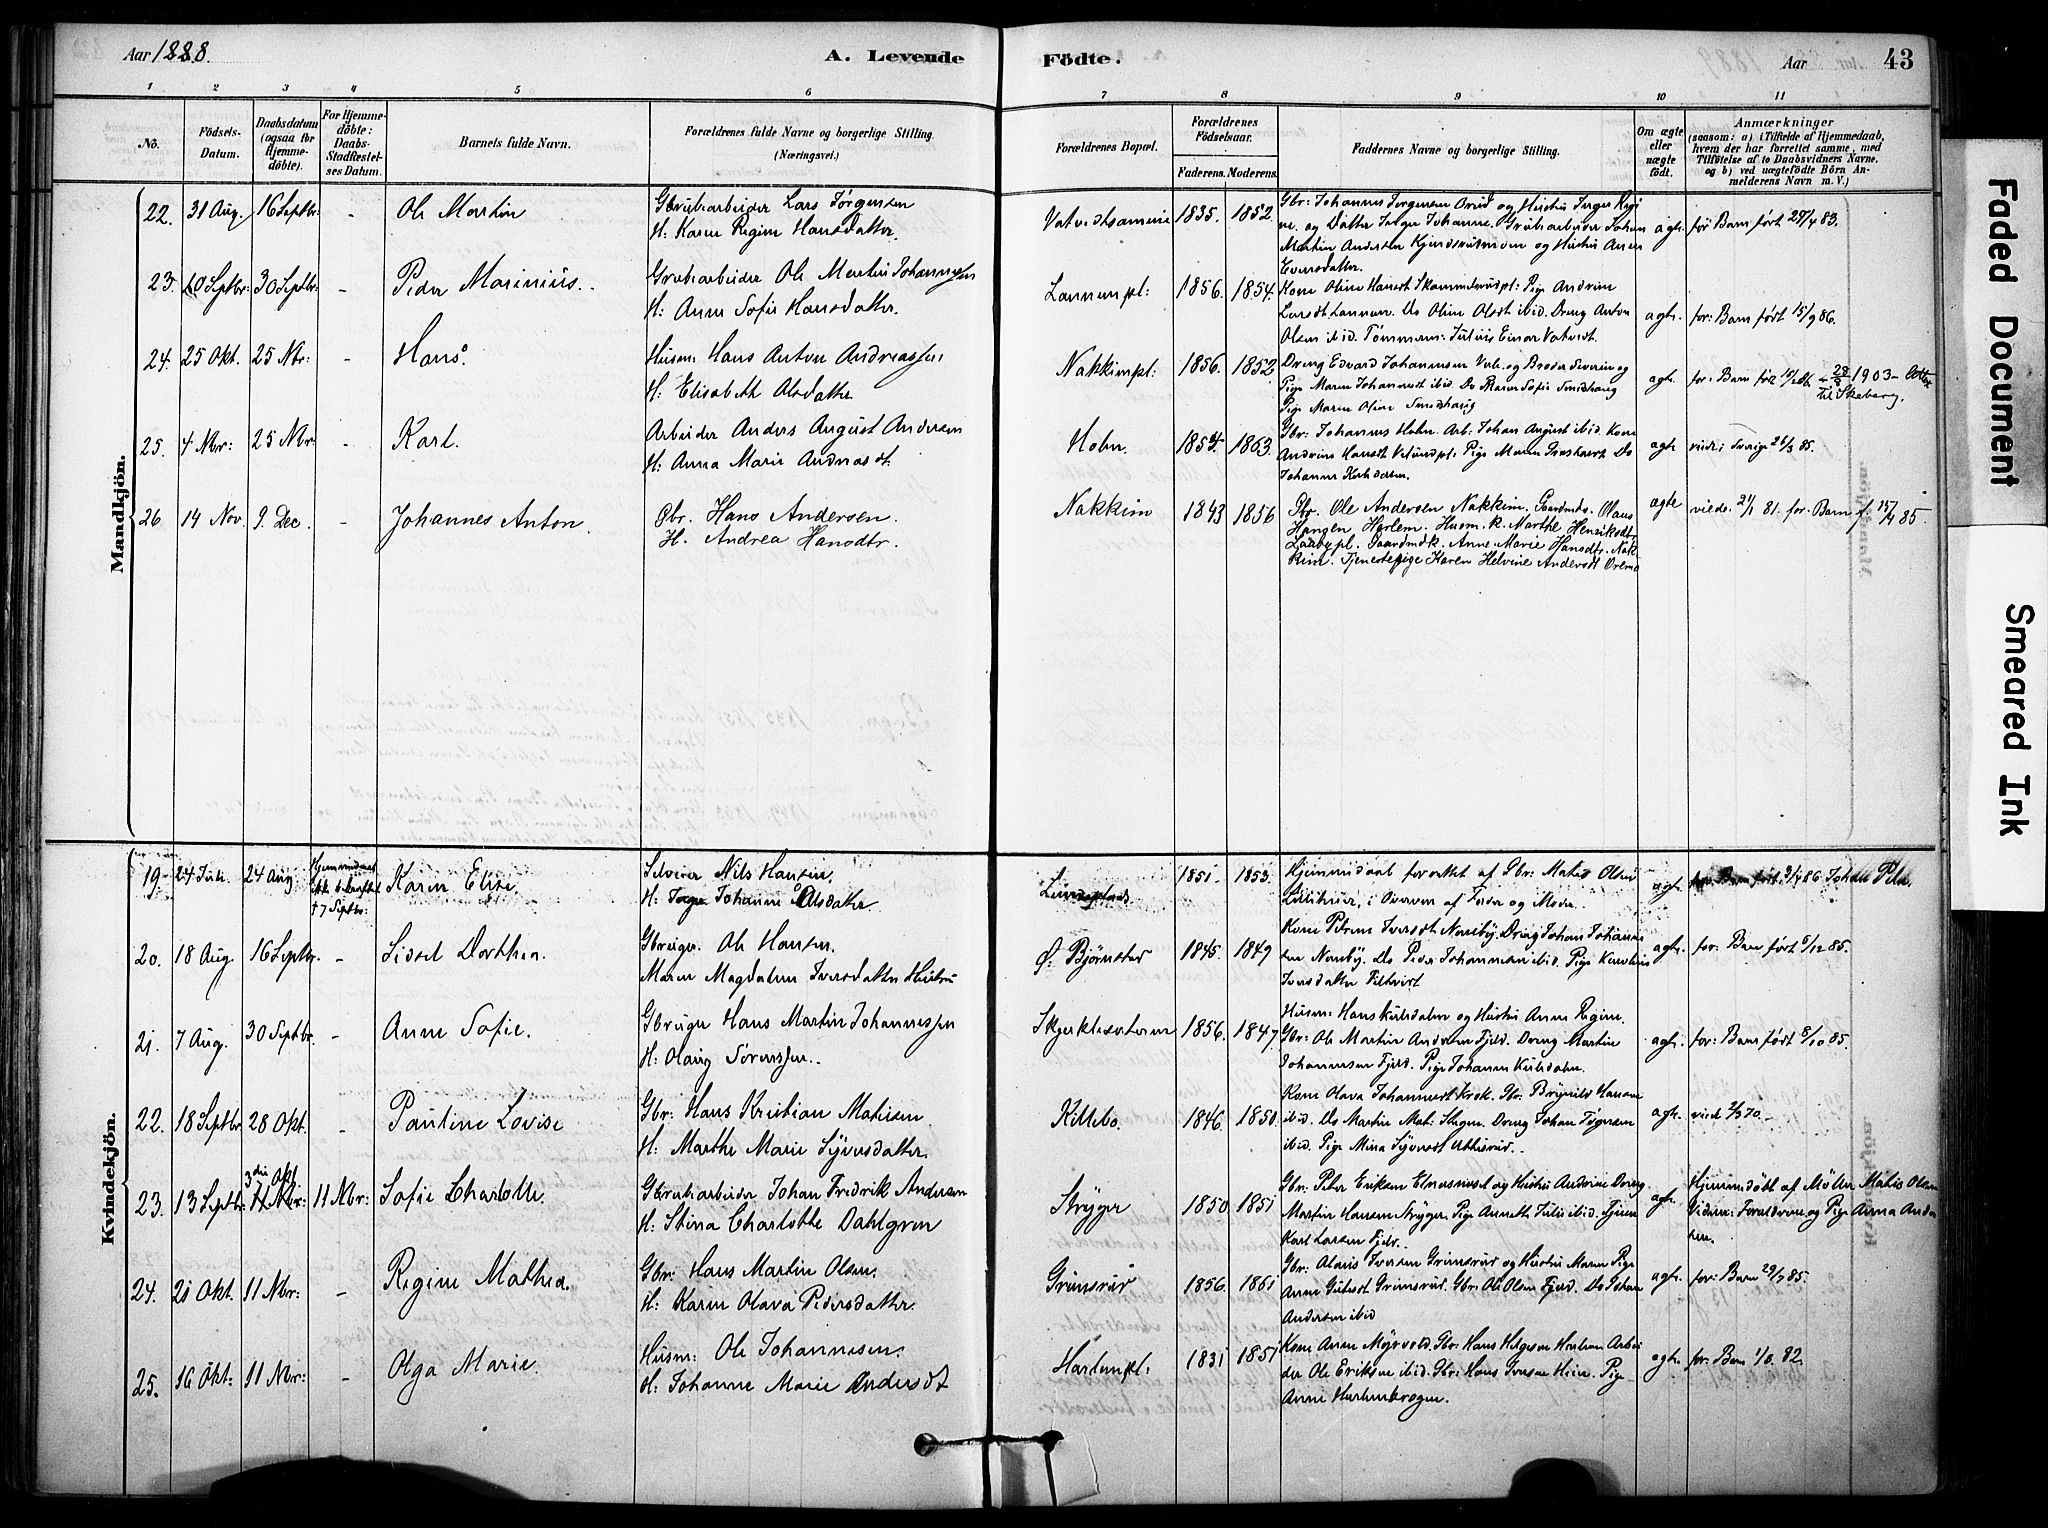 Aar 1888.
A. Levende
Födte.
Aar
43
1 2 3 4 5 6 7 8 9 10 11
No.
Födsels-
Datum.
Daabsdatum
(ogsaa for
Hjemme-
döbte).
For Hjemme-
döbte:
Daabs-
Stadfæstel-
ses Datum.
Barnets fulde Navn.
Forældrenes fulde Navne og borgerlige Stilling.
(Næringsvei.)
Forældrenes Bopæl.
Forældrenes
Födselsaar.
Faderens. Moderens.
Faddernes Navne og borgerlige Stilling.
Om ægte
eller
uægte
födt.
Anmærkninger
(saasom: a) i Tilfælde af Hjemmedaab,
hvem der har forrettet samme, med
Tilföielse af to Daabsvidners Navne.
og b) ved uægtefödte Börn An-
melderens Navn m. V.)
Mandkjön.
22. 31 Aug. 16 Septbr: - Ole Martin
Grubearbeider Lars Jørgensen
H: Karen Regine Hansdatter.
1835. 1852.
Gbr: Johannes Jørgensen
Martin Andersen
Eversdatter.
for Barn født 29/4 83.
23. 10 Septbr: 30 Septbr: - Peder Marinius.
Grubearbeider Ole Martin Johannessen
H: Anne Sofie Hansdatter.
Lannempl: 1856. 1854.
Kone Oline Hansdt Pige Andrine
Larsdt Lannem. Do Oline Olsdt ibid. Dreng Anton
Olsen ibid. Tømmerm: Julius Einar
agte. for: Barn født 15/9 86.
24. 25 Okt. 25 Nbr: - Hans
Husm: Hans Anton Andreassen
H: Elisabeth Olsdatter
Nakkimpl: 1856. 1852
Dreng Edvard Johannessen og Broder Severin og
Pige Maren Johannesdt ibid. Do Karen Sofie
Pige Maren Oline
agte. for: Barn
1903 - Attest
til Skeberg.
25. 4 Nbr: 25 Nbr: - Karl.
Arbeider Anders August Andersen
H: Anna Marie Andreasdt.
Holm. 1854. 1863.
Gbr: Johannes Holm. Arb: Johan August ibid. Kone
Andrine Hansdt Pige Maren Do
Johanne
agte viede i Sverige 26/3 85.
26 14 Nov 9. Dec. - Johannes Anton
Gbr. Hans Andersen.
H. Andrea Hansdtr.
Nakkim 1843 1856
Gbr. Ole Andersen Nakkim, Gaardmds. Olaus
Haugen Harlem. Husm. k. Marthe Henriksdtr
Laabypl. Gaardmdk. Anne Marie Hansdtr. Nak-
kim. Tjenestepige Karen Helvine Andersdt
agte viede 21/1 81. for. Barn f. 15/4 85.
Kvindekjön.
19. 24 Juli. 24 Aug
† 7 Septbr:
Karen Elise.
Nils Hansen.
H: Johanne Olsdatter
1851. 1853.
Hjemmedaab forrettet af Gbr: Matis Olsen
i Overvær af Fader og Moder.
agte for Barn født 3/4 86
20. 18 Aug. 16 Septbr. - Sissel Dorthea.
Gbruger. Ole Hansen.
Maren Magdalene Iversdatter Hustru
Ø: Bjørnstad 1845. 1849
Kone Petrine Iversdt Nordby. Dreng Johan Johannes
sen Nordby. Do Peder Johannessen ibid. Pige Karoline
Iversdatter
agte. for: Barn født 6/12 85.
21. 7 Aug. 30 Septbr. - Anne Sofie.
Gbruger Hans Martin Johannessen
H: Olaug Sørenssen.
1856. 1847.
Husm: Hans Kulsdalen og Hustru Anne Regine.
Gbr: Ole Martin Andersen Fjeld. Dreng Martin
Johannessen Fjeld. Pige Johanne Kulsdalen.
agte. for: Barn født 8/10 85.
22. 18 Septbr 28 Okt. - Pauline Lovise
Gbr: Hans Kristian Mathisen.
H: Marthe Marie Syversdatter.
Killebo. 1846. 1850.
Kone Olava Johannesdt Krok. Gbr: Brynild Hansen
ibid. Do Martin Dreng Johan
ibid. Pige Mina Syversdt
agte. viede 2/3 70.
23. 13 Septbr: 3die Okt 11 Nbr: 11 Nbr: Sofie Charlotte.
Grubearbeider Johan Fredrik Andersen
H: Stina Charlotte Dahlgren
Stryger 1850 1851
Gbr: Peter Eriksen og Hustru Andrine Dreng
Martin Hansen Stryger. Pige Annette Julie ibid.
Karl Larsen Fjeld.
agte. Hjemmedöbt af Möller Matis Olsen
Vidner: Forældrene og Pige Anna Ander
sen.
24. 21 Okt. 11 Nbr: - Regine Mathea.
Gbr: Hans Martin Olsen.
H: Karen Olava Pedersdatter.
Grimsrud 1856 1851
Gbr: Olaus Iversen Grimsrud og Hustru Maren Pige
Anne Grimsrud. Gbr: Ole Olsen Fjeld. Do Johan
Andersen ibid
agte. for: Barn 29/7 85.
25. 16 Okt: 11 Nbr: - Olga Marie.
Husm: Ole Johannesen.
H: Johanne Marie Andersdt
Harlempl: 1831 1851
Kone Anne Myrvold. Gbr: Hans Helgesen Harlem Arbei
der Ole Eriksen ibid. Gbr: Hans Iversen Pige
Anne Harlembraaten.
agte. for: Barn 1/3 82.
Faded Document
Smeared Ink